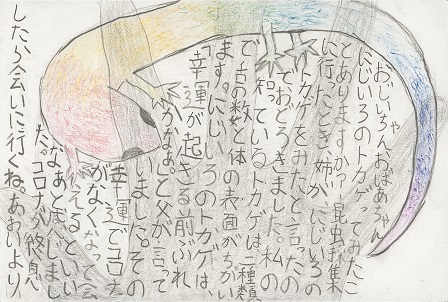 おじいちゃんおばあちゃん
にじいろのトカゲってみたこ
とありますか?昆虫採集
に行ったとき、姉がにじいろの
トカゲをみたと言ったの
でおどろきました。私の
知っているトカゲは二種類
で舌の数と体の表面がちがい
ます。にじいろのトカゲは
「幸運が起きる前ぶれ
かなぁ」と父が言って
いました。その
幸運でコロナ
がなくなって会
えるといい
なぁと思いまし
た。コロナが終息
したら会いに行くね。あおいより